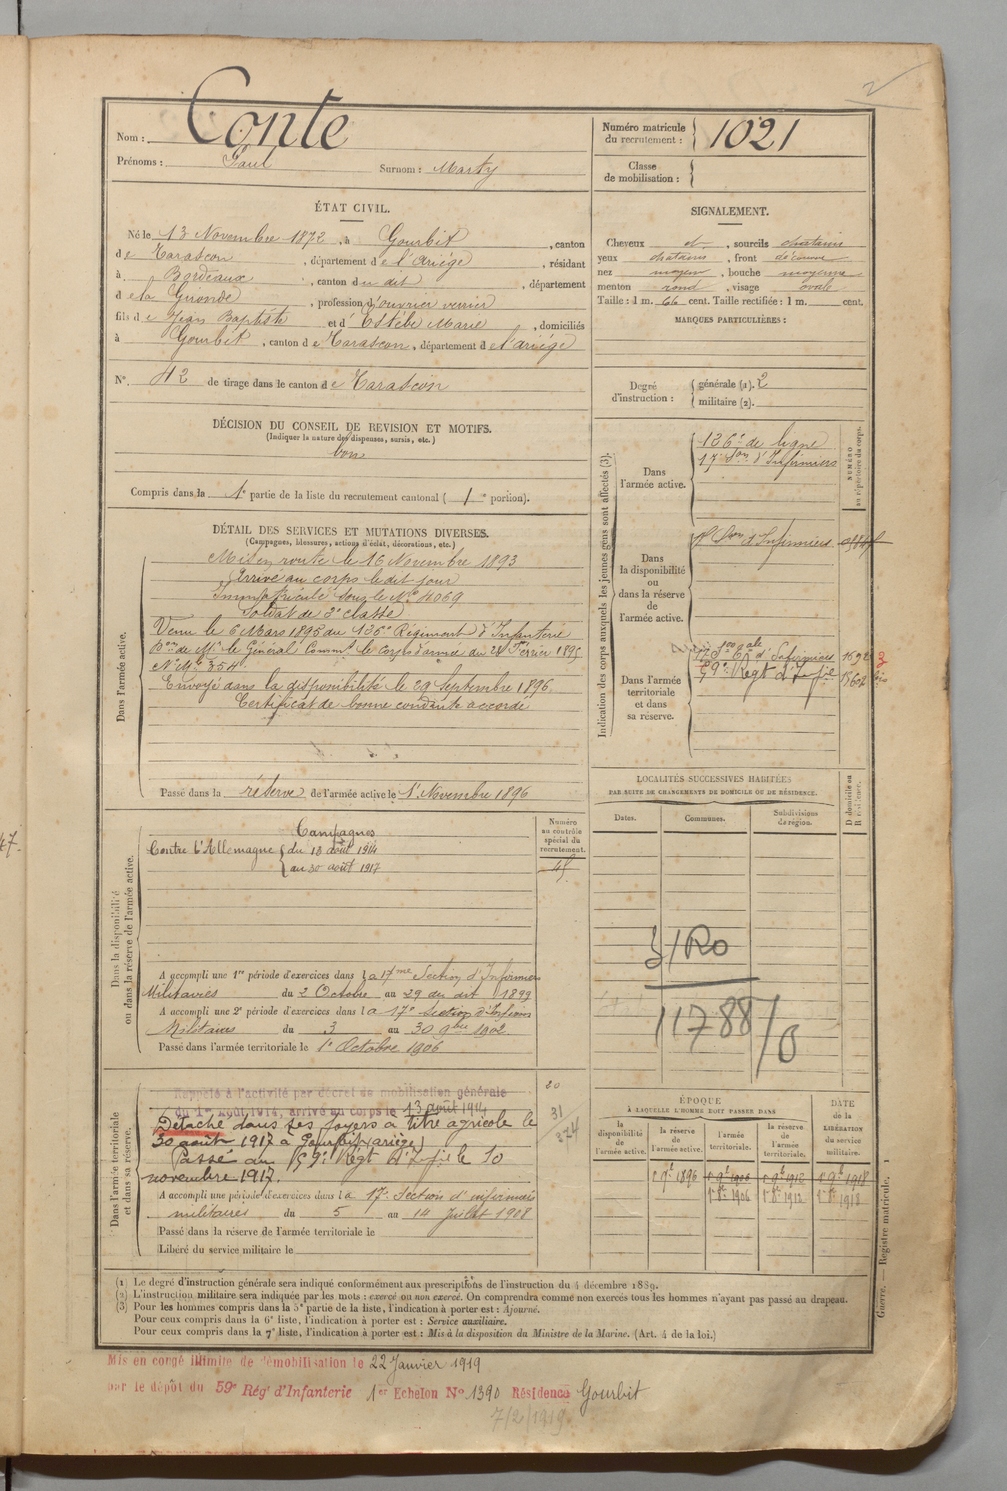 Nom : Conte
Prénoms : Paul Surnom : Marty
Numéro matricule du recrutement : 1021
Classe de mobilisation :
ÉTAT CIVIL.
Né le 13 Novembre 1872, à Gourbit, canton
de Tarascon, département de l'Ariège, résidant
à Bordeaux, canton du dit, département
de la Gironde, profession d'ouvrier verrier
fils de Jean Baptiste et d'Estèbe Marie, domiciliés
à Gourbit, canton de Tarascon, département de l'ariége
N°. 42 de tirage dans le canton de Tarascon
DÉCISION DU CONSEIL DE REVISION ET MOTIFS.
(Indiquer la nature des dispenses, sursis, etc.)
bon
Compris dans la 1e partie de la liste du recrutement cantonal ( 1e portion).
SIGNALEMENT.
Cheveux et, sourcils chatains
yeux chatains, front découvert
nez moyen, bouche moyenne
menton rond, visage ovale
Taille : 1 m. 66 cent. Taille rectifiée : 1 m. cent.
MARQUES PARTICULIÈRES :
Degré d'instruction :
générale (1). 2
militaire (2).
DÉTAIL DES SERVICES ET MUTATIONS DIVERSES.
(Campagnes, blessures, actions d'éclat, décorations, etc.)
Dans l'armée active.
Mis en route le 16 Novembre 1893
Arrivé au corps le dit jour
Immatriculé sous le No 4069
Soldat de 2e classe
Venu le 6 Mars 1895 du 136e Régiment d'Infanterie
Don de Mr le Général Commt le Corps d'armée du 28 Février 1895
No Mle 354
Envoyé dans la disponibilité le 29 Septembre 1896
Certificat de bonne conduite accordé
Passé dans la réserve de l'armée active le 1er Novembre 1896
Indication des corps auxquels les jeunes gens sont affectés (3).
NUMÉRO au répertoire du corps.
Dans l'armée active.
136e de ligne
17e Son d'Infirmiers
Dans la disponibilité ou dans la réserve de l'armée active.
17e Son d'Infirmiers
Dans l'armée territoriale et dans sa réserve.
17e Son d'Infirmiers
59e Régt d'Infie
LOCALITÉS SUCCESSIVES HABITÉES
PAR SUITE DE CHANGEMENTS DE DOMICILE OU DE RÉSIDENCE.
Dates. Communes. Subdivisions de région. D domicile ou R résidence.
11788/0
Dans la disponibilité ou dans la réserve de l'armée active.
Numéro au contrôle spécial du recrutement.
Campagnes
Contre l'Allemagne du 13 août 1914
au 30 août 1917
A accompli une 1re période d'exercices dans la 17me Section d'Infirmiers
Militaires du 2 Octobre au 29 du dit 1899
A accompli une 2e période d'exercices dans la 17e Section d'Infirmiers
Militaires du 3 au 30 9bre 1902
Passé dans l'armée territoriale le 1er Octobre 1906
Dans l'armée territoriale et dans sa réserve.
Rappelé à l'activité par décret de mobilisation générale
du 1er Août 1914, arrivé au corps le 13 août 1914
Détaché dans ses foyers à titre agricole le
30 août 1917 à Gourbit (ariège)
Passé au 59e Régt d'Infie le 10
novembre 1917.
A accompli une période d'exercices dans la 17e Section d'infirmiers
militaires du 5 au 14 Juillet 1908
Passé dans la réserve de l'armée territoriale le
Libéré du service militaire le
ÉPOQUE
À LAQUELLE L'HOMME DOIT PASSER DANS
DATE de la LIBÉRATION du service militaire.
la disponibilité de l'armée active. la réserve de l'armée active. l'armée territoriale. la réserve de l'armée territoriale.
1896 1906 1912 1918
1906 1912 1918
Guerre. — Registre matricule. 1
(1) Le degré d'instruction générale sera indiqué conformément aux prescriptions de l'instruction du 4 décembre 1889.
(2) L'instruction militaire sera indiquée par les mots : exercé ou non exercé. On comprendra comme non exercés tous les hommes n'ayant pas passé au drapeau.
(3) Pour les hommes compris dans la 5e partie de la liste, l'indication à porter est : Ajourné.
Pour ceux compris dans la 6e liste, l'indication à porter est : Service auxiliaire.
Pour ceux compris dans la 7e liste, l'indication à porter est : Mis à la disposition du Ministre de la Marine. (Art. 4 de la loi.)
Mis en congé illimité de démobilisation le 22 Janvier 1919
par le dépôt du 59e Régt d'Infanterie 1er Echelon No 1390 Résidence Gourbit
7/2/1919